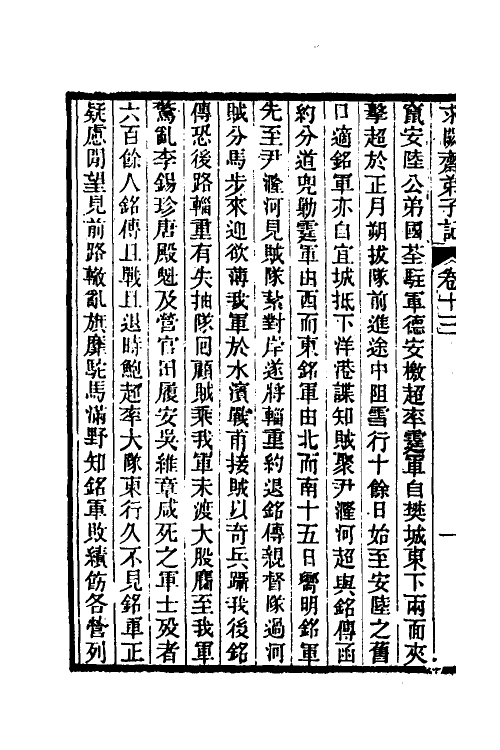 求闕齋弟子記 卷十三 一
竄安陸公弟國荃駐軍德安檄超率霆軍自樊城東下兩面夾
擊超於正月朔拔隊前進途中阻雪行十餘日始至安陸之舊
口適銘軍亦自宜城抵下洋港諜知賊聚尹漋河超與銘傳函
約分道兜勦霆軍由西而東銘軍由北而南十五日嚮明銘軍
先至尹漋河見賊隊紮對岸遂將輜重約退銘傳親督隊過河
賊分馬步來迎欲薄我軍於水濱戰甫接賊以奇兵躡我後銘
傳恐後路輜重有失抽隊回顧賊乘我軍未渡大股麕至我軍
驚亂李錫珍唐殿魁及營官田履安吳維章咸死之軍士歿者
六百餘人銘傳且戰且退時鮑超率大隊東行久不見銘軍正
疑慮間望見前路轍亂旗靡駝馬滿野知銘軍敗績飭各營列